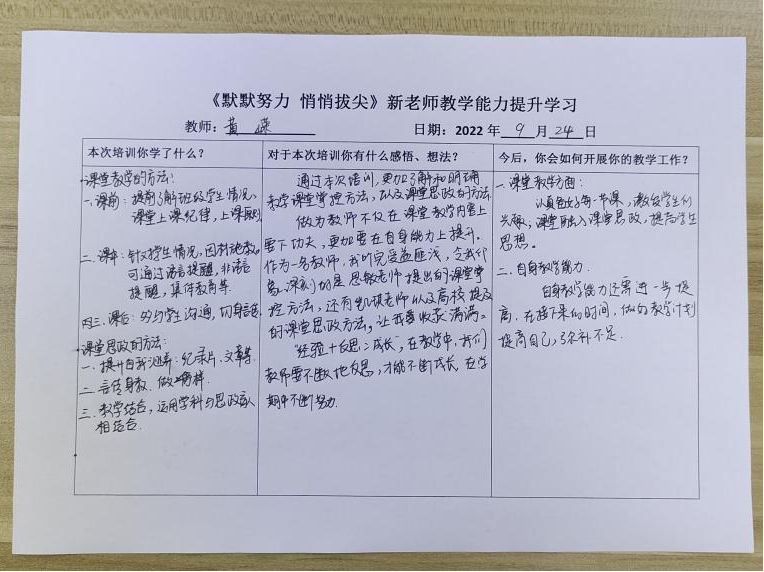 《默默努力 悄悄拔尖》新老师教学能力提升学习
教师：黄
日期：2022 年 9 月 24 日
本次培训你学了什么？
课堂教学的方法：
一、课前：提前了解班级学生情况，
课堂上课纪律，上课
二、课中：针对学生情况，因材施教。
可通过语言提醒，非语言
提醒，集体教育等
三、课后：多与学生沟通，
课堂思政的方法：
一、提升自我涵养：纪录片、文章等
二、言传身教，做榜样.
三、教学结合，运用学科与思政
相结合.
对于本次培训你有什么感悟、想法？
通过本次培训，更加了解和明确
教学课堂掌控方法，以及课堂思政的方法
做为教师不仅在课堂教学内容上
要下功夫，更加要在自身能力上提升。
作为一名教师，我听完受益匪浅，令我印
象深刻的是思敏老师提出的课堂掌
控方法，还有老师以及高校提及
的课堂思政方法，让我要收获满满。
"经验+反思=成长"，在教学中，我们
教师要不断地反思，才能不断成长，在学
期中不断努力.
今后，你会如何开展你的教学工作？
一、课堂教学方面：
认真包好每一节课，激发学生们
兴趣，课堂融入课堂思政，提高学生
思想。
二、自身教学能力.
自身教学能力还需进一步提
高，在接下来的时间，做好教学计划
提高自己，弥补不足.